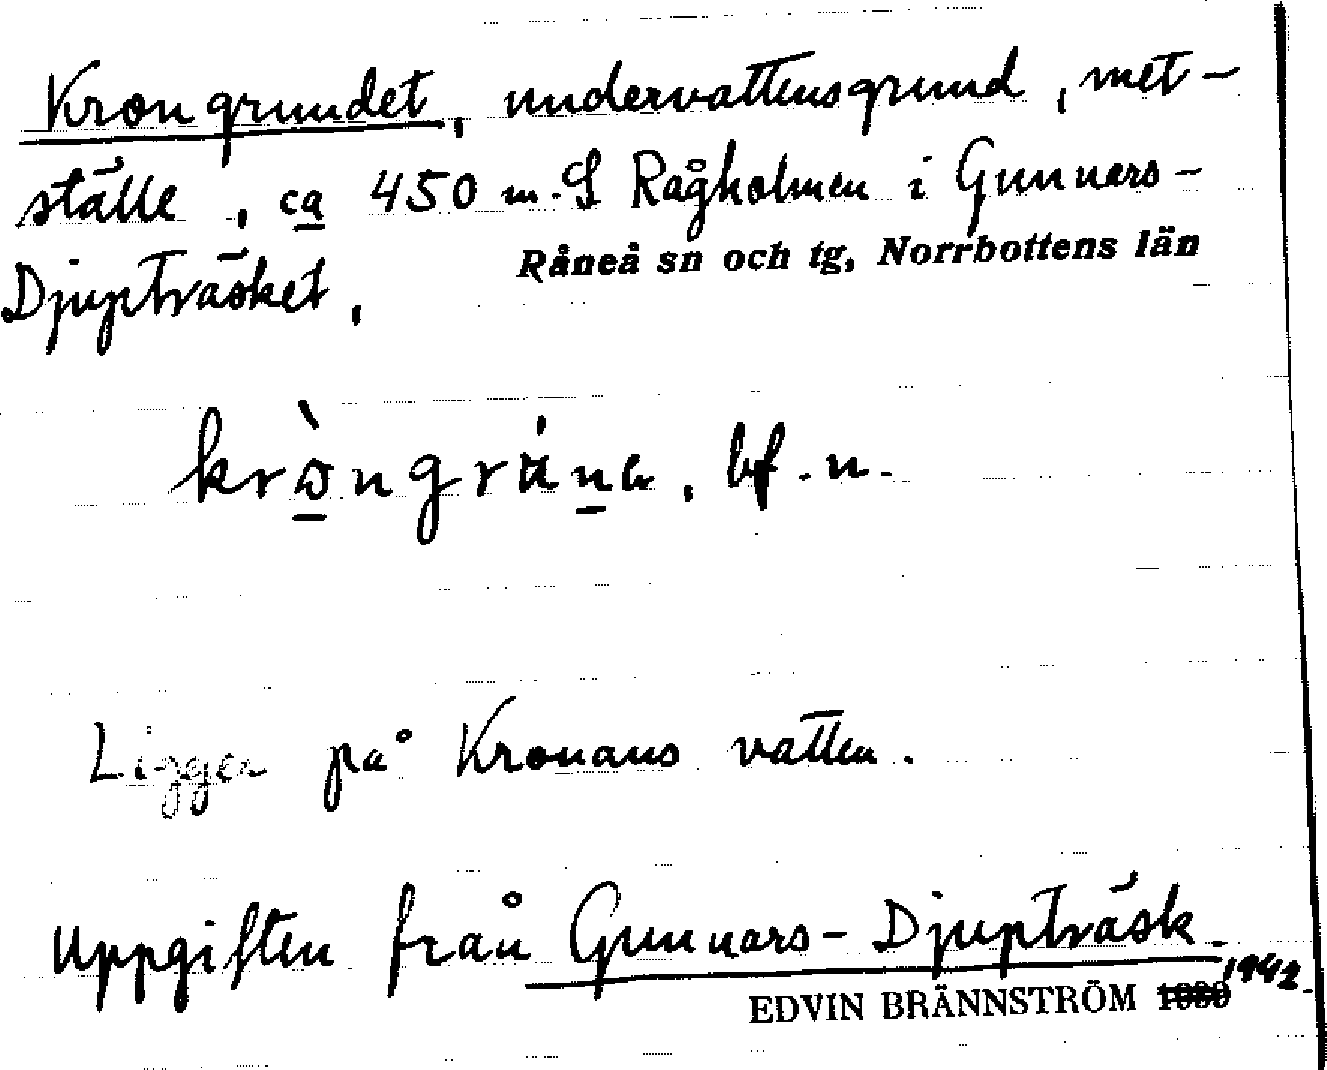 Krongrundet, undervattensgrund, met-
ställe, ca 450 m. S Rågholmen i Gunnars-
Råneå sn och tg, Norrbottens län
Djupträsket,
bf. n.
Ligger på Kronans vatten.
Uppgiften från Gunnars-Djupträsk.
EDVIN BRÄNNSTRÖM 1942